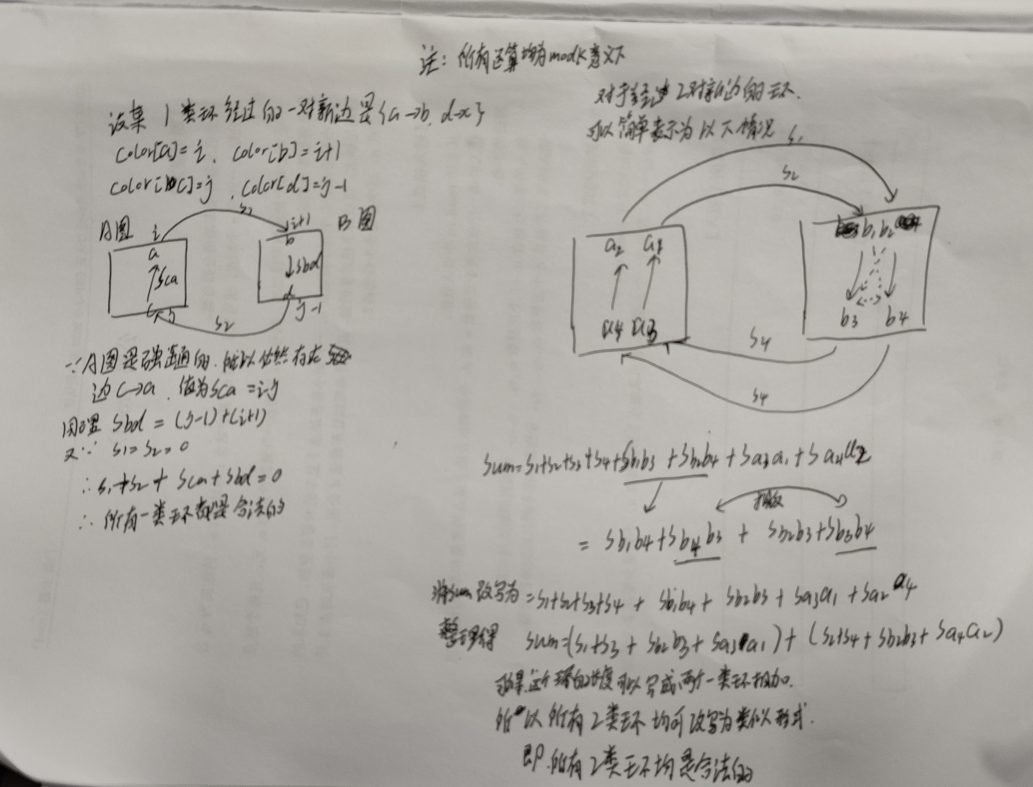 注：所有运算均为modK意义下
设某1类环经过的一对新边是{a→b, d→x}
color[a]=i, color[b]=i+1
color[c]=j, color[d]=j-1
A图
i
a
sca
c
j
s1
i+1
b
sbd
d
j-1
s2
B图
∵A图是强连通的, 所以依然存在
边c→a, 值为sca=i-j
同理 sbd=(j-1)+(i+1)
又∵ s1=s2=0
∴s1+s2+sca+sbd=0
∴所有一类环都是合法的
对于经过2对新边的环.
可以简单表示为以下情况
s1
s2
a2 a1
a4 a3
b1 b2
b3 b4
s4
s4
sum=s1+s2+s3+s4+sb1b3+sb2b4+sa3a1+sa4a2
拆成
=sb1b4+sb4b3+sb2b3+sb3b4
将sum改写为=s1+s2+s3+s4+sb1b4+sb2b3+sa3a1+sa2a4
整理得 sum=(s1+s3+sb2b3+sa3a1)+(s2+s4+sb2b3+sa4a2)
这个环的长度可以写成两个一类环相加.
所以所有2类环均可改写为类似形式.
即所有2类环均是合法的